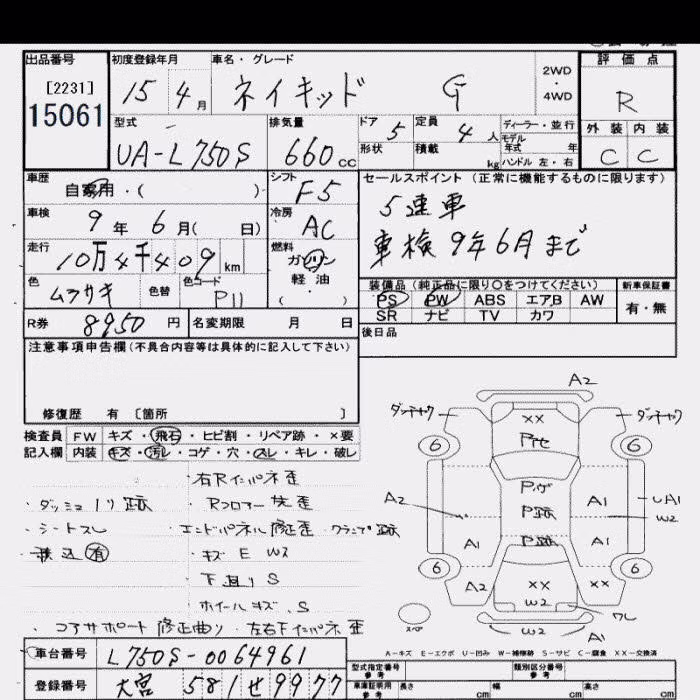 出品番号 初度登録年月 車名・グレード 2WD・4WD 評価点
[2231] 15061
15 4月 ネイキッド G R
型式 排気量 ドア 5 定員 4人 ディーラー・並行 外装 内装
モデル年式 年
UA-L750S 660cc 形状 積載 kg ハンドル 左・右 C C
車歴 自家用・( )・ シフト F5 セールスポイント (正常に機能するものに限ります)
5速車
車検 9年 6月( 日) 冷房 AC 車検9年6月まで
走行 10万4千409km 燃料 ガソリン
軽油
・( )
色 ムラサキ 色替 色コード P11 装備品 (純正品に限り○をつけてください) 新車保証書
PS PW ABS エアB AW 有・無
SR ナビ TV カワ
R券 8950円 名変期限 月 日 後日品
注意事項申告欄(不具合内容等は具体的に記入して下さい)
修復歴 有 〔箇所 〕
検査員 FW キズ・飛石・ヒビ割・リペア跡・×要
記入欄 内装 キズ・汚レ・コゲ・穴・スレ・キレ・破レ
・右Rインパネ歪
・ダッシュノリ跡 Rフロアー 歪
・シートスレ ・エンドパネル修正歪 クランプ跡
有 ・キズ E W3
下廻りS
ホイールキズ、S
・コアサポート修正曲り・左右Fインパネ歪
A2
××
6 6
A2 A1 UA1
W2
A1 A1
6 6
A2 ×× ××
W2 ワレ
スペ W2 A1
A-キズ E-エクボ U-凹み W-補修跡 S-サビ C-腐食 XX-交換済
車台番号 L750S-0064961 型式指定番号 参考 類別区分番号 参考
登録番号 大宮 581 せ 9977 車庫証明用 参考 長さ cm 幅 cm 高さ cm